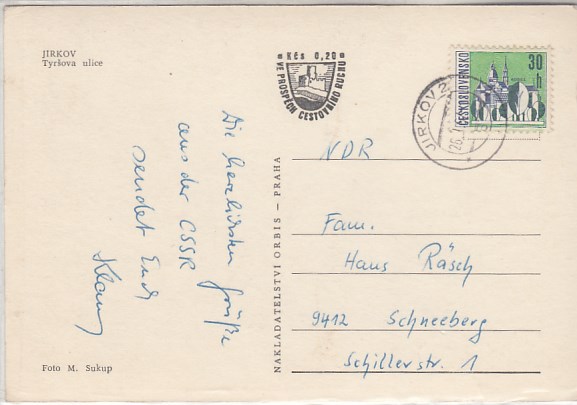 JIRKOV
Tyršova ulice
Kčs 0,20
VE PROSPĚCH CESTOVNÍHO RUCHU
ČESKOSLOVENSKO
30 h
JIRKOV 2
26.
Die herzlichsten Grüße
aus der CSSR
sendet Euch
Klaus
NAKLADATELSTVÍ ORBIS – PRAHA
NDR
Fam.
Hans Räsch
9412 Schneeberg
Schillerstr. 1
Foto M. Sukup